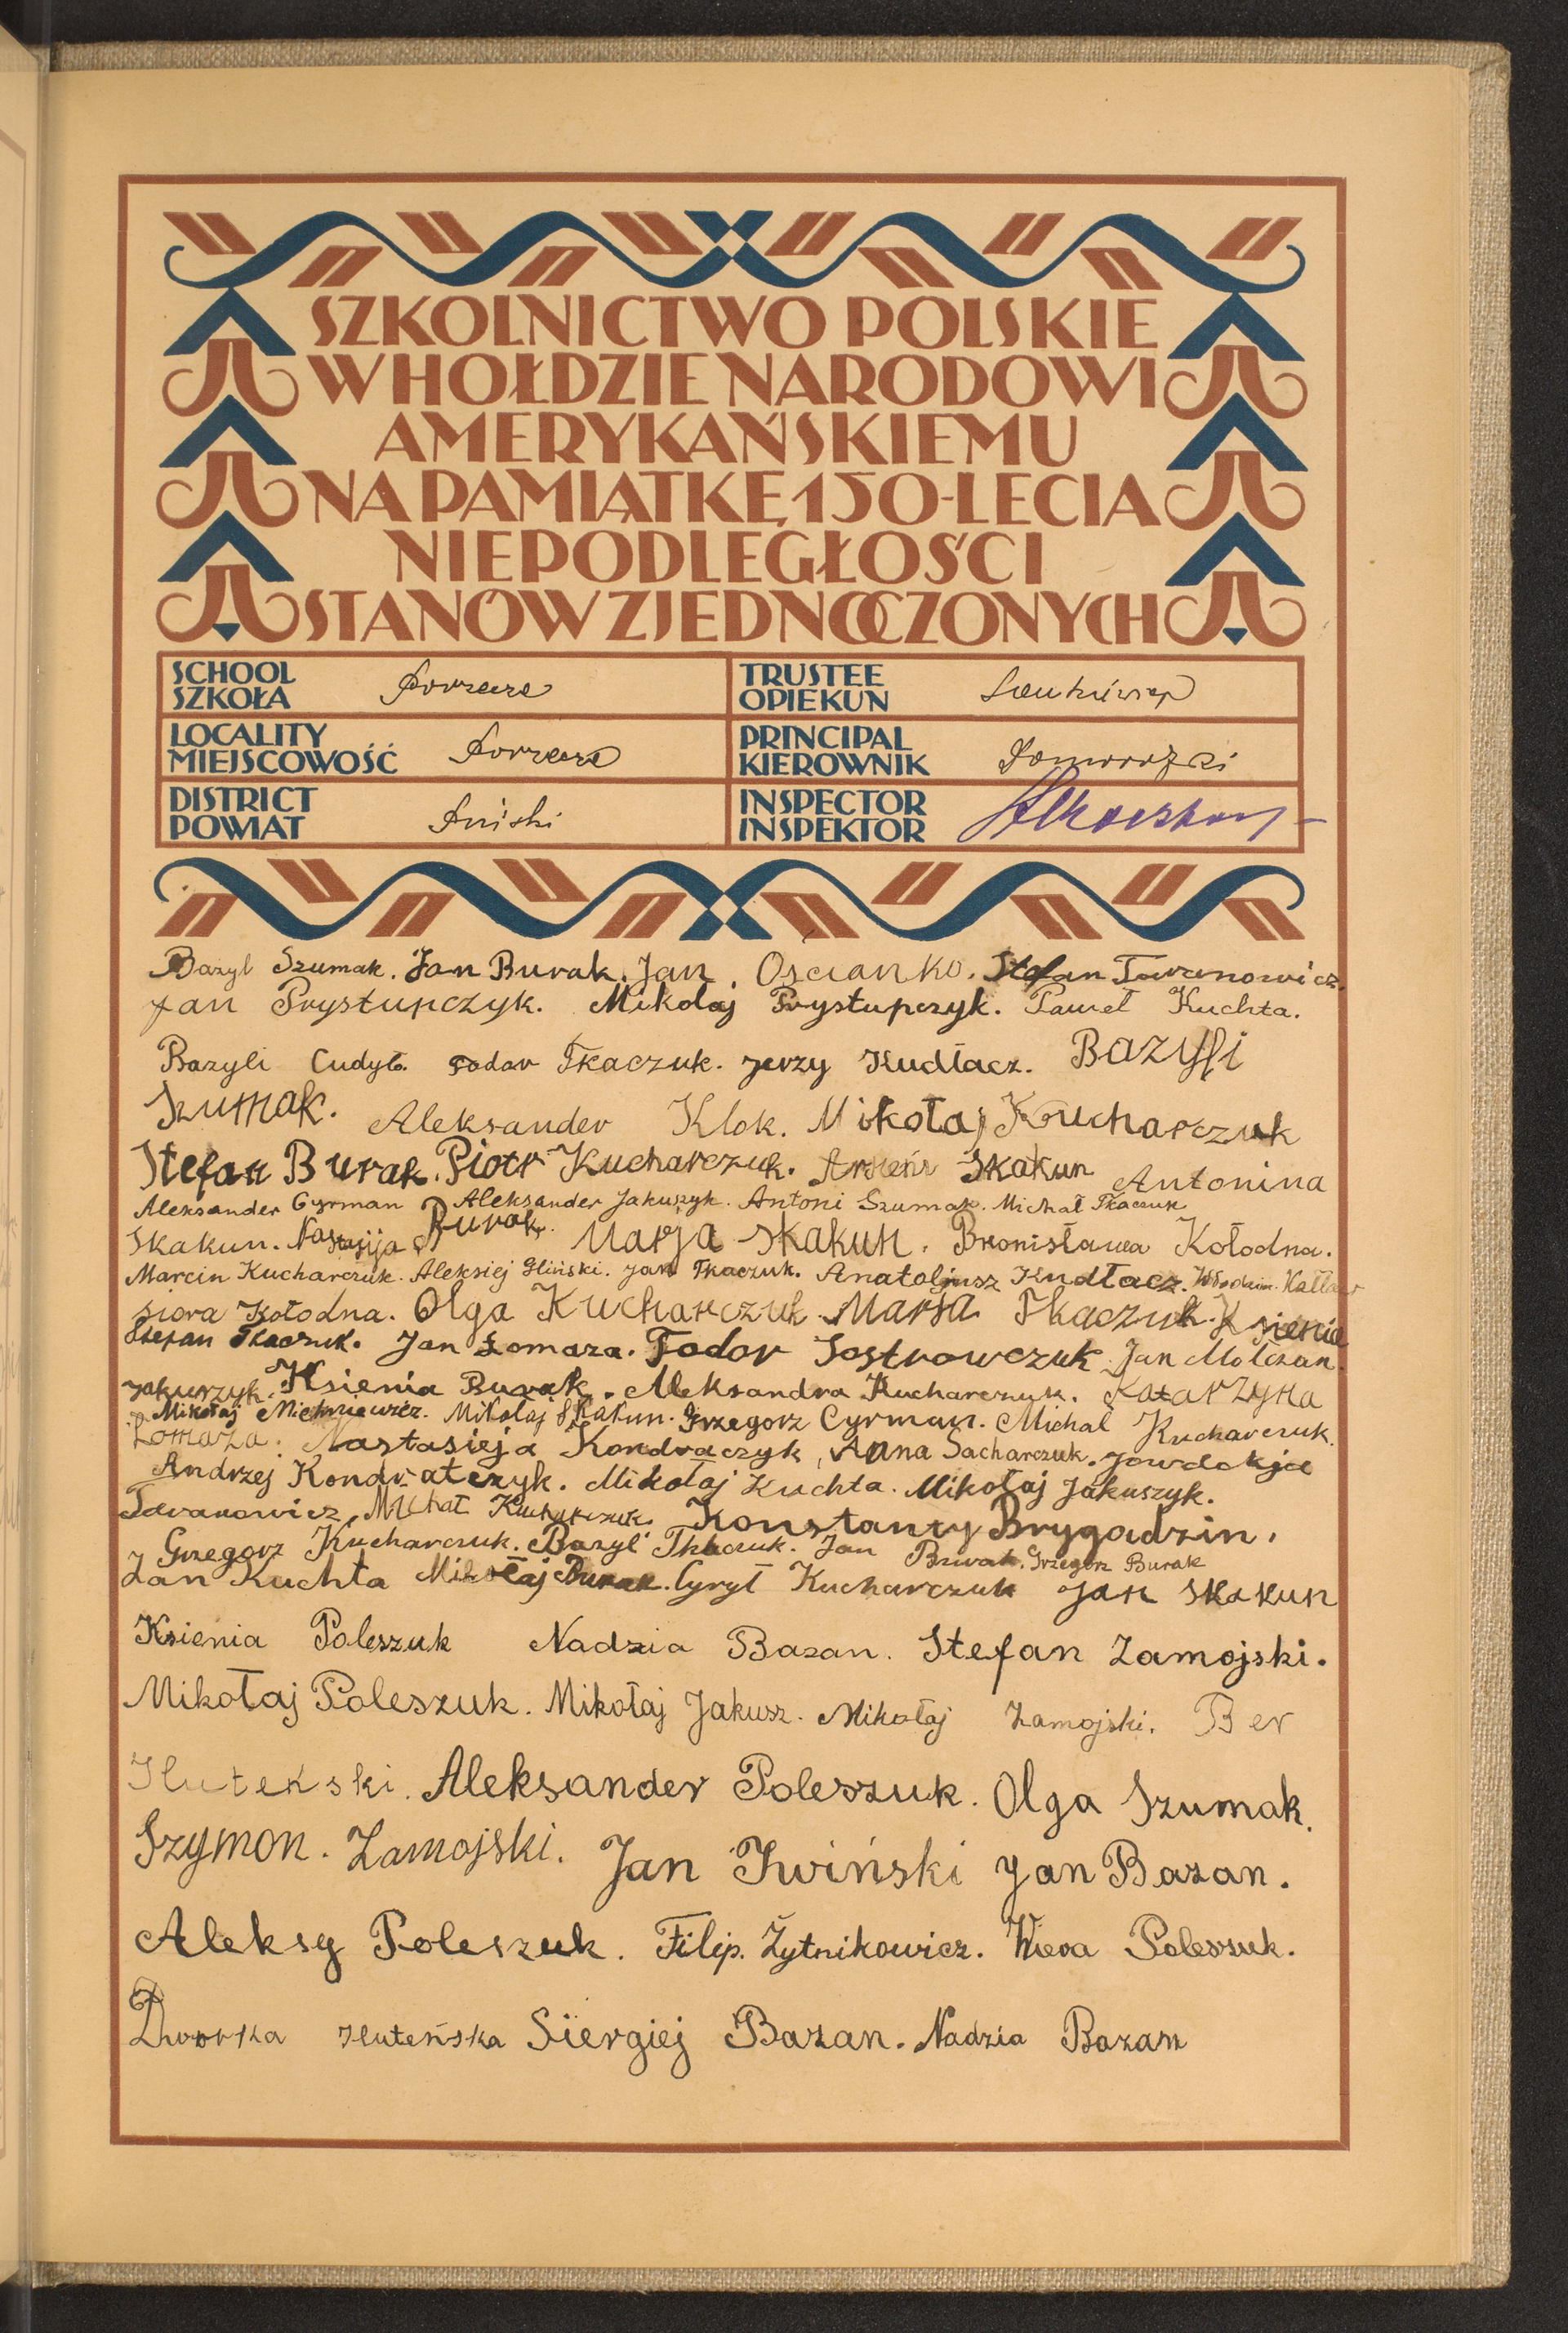 SZKOLNICTWO POLSKIE
W HOŁDZIE NARODOWI
AMERYKAŃSKIEMU
NA PAMIĄTKĘ 150-LECIA
NIEPODLEGŁOŚCI
STANÓW ZJEDNOCZONYCH
SCHOOL
SZKOŁA
TRUSTEE
OPIEKUN
LOCALITY
MIEJSCOWOŚĆ
PRINCIPAL
KIEROWNIK
DISTRICT
POWIAT
Piński
INSPECTOR
INSPEKTOR
Bazyl Szumak. Jan Burak. Jan Ościanko. Stefan Tawranowicz.
Jan Prystupczyk. Mikołaj Prystupczyk. Paweł Kuchta.
Bazyli Cudyło. Fodor Tkaczuk. Jerzy Kudłacz. Bazyli
Szumak. Aleksander Klok. Mikołaj Kucharczuk
Stefan Burak. Piotr Kucharczuk. Skakun Antonina
Aleksander Cyrman Aleksander Jakuszyk. Antoni Szumak. Michał Tkaczuk
Skakun. Nastasija Burak. Marja Skakun. Bronisława Kołodna.
Marcin Kucharczuk. Aleksiej Gliński. Jan Tkaczuk. Anatoljusz Kudłacz.
Kołodna. Olga Kucharczuk. Marja Tkaczuk. Ksienia
Stefan Tkaczuk. Jan Łomaza. Fodor Jostrowczuk. Jan Mołczan.
Jakuszyk. Ksienia Burak. Aleksandra Kucharczuk. Katarzyna
Mikołaj Michniewicz. Mikołaj Skakun. Grzegorz Cyrman. Michał Kucharczuk.
Łomaza. Nastasieja Kondraczyk, Anna Sacharczuk. Jewdokja
Andrzej Kondratczyk. Mikołaj Kuchta. Mikołaj Jakuszyk.
Michał Kucharczuk. Konstanty Brygadzin.
Grzegorz Kucharczuk. Bazyl Tkaczuk. Jan Burak. Grzegorz Burak
Jan Kuchta Mikołaj Burak. Cyryl Kucharczuk Jan Skakun
Ksienia Poleszuk Nadzia Bazan. Stefan Zamojski.
Mikołaj Poleszuk. Mikołaj Jakusz. Mikołaj Zamojski. Ber
Aleksander Poleszuk. Olga Szumak.
Szymon. Zamojski. Jan Iwiński Jan Bazan.
Aleksy Poleszuk. Filip. Żytnikowicz. Wiera Poleszuk.
Dworka Siergiej Bazan. Nadzia Bazan